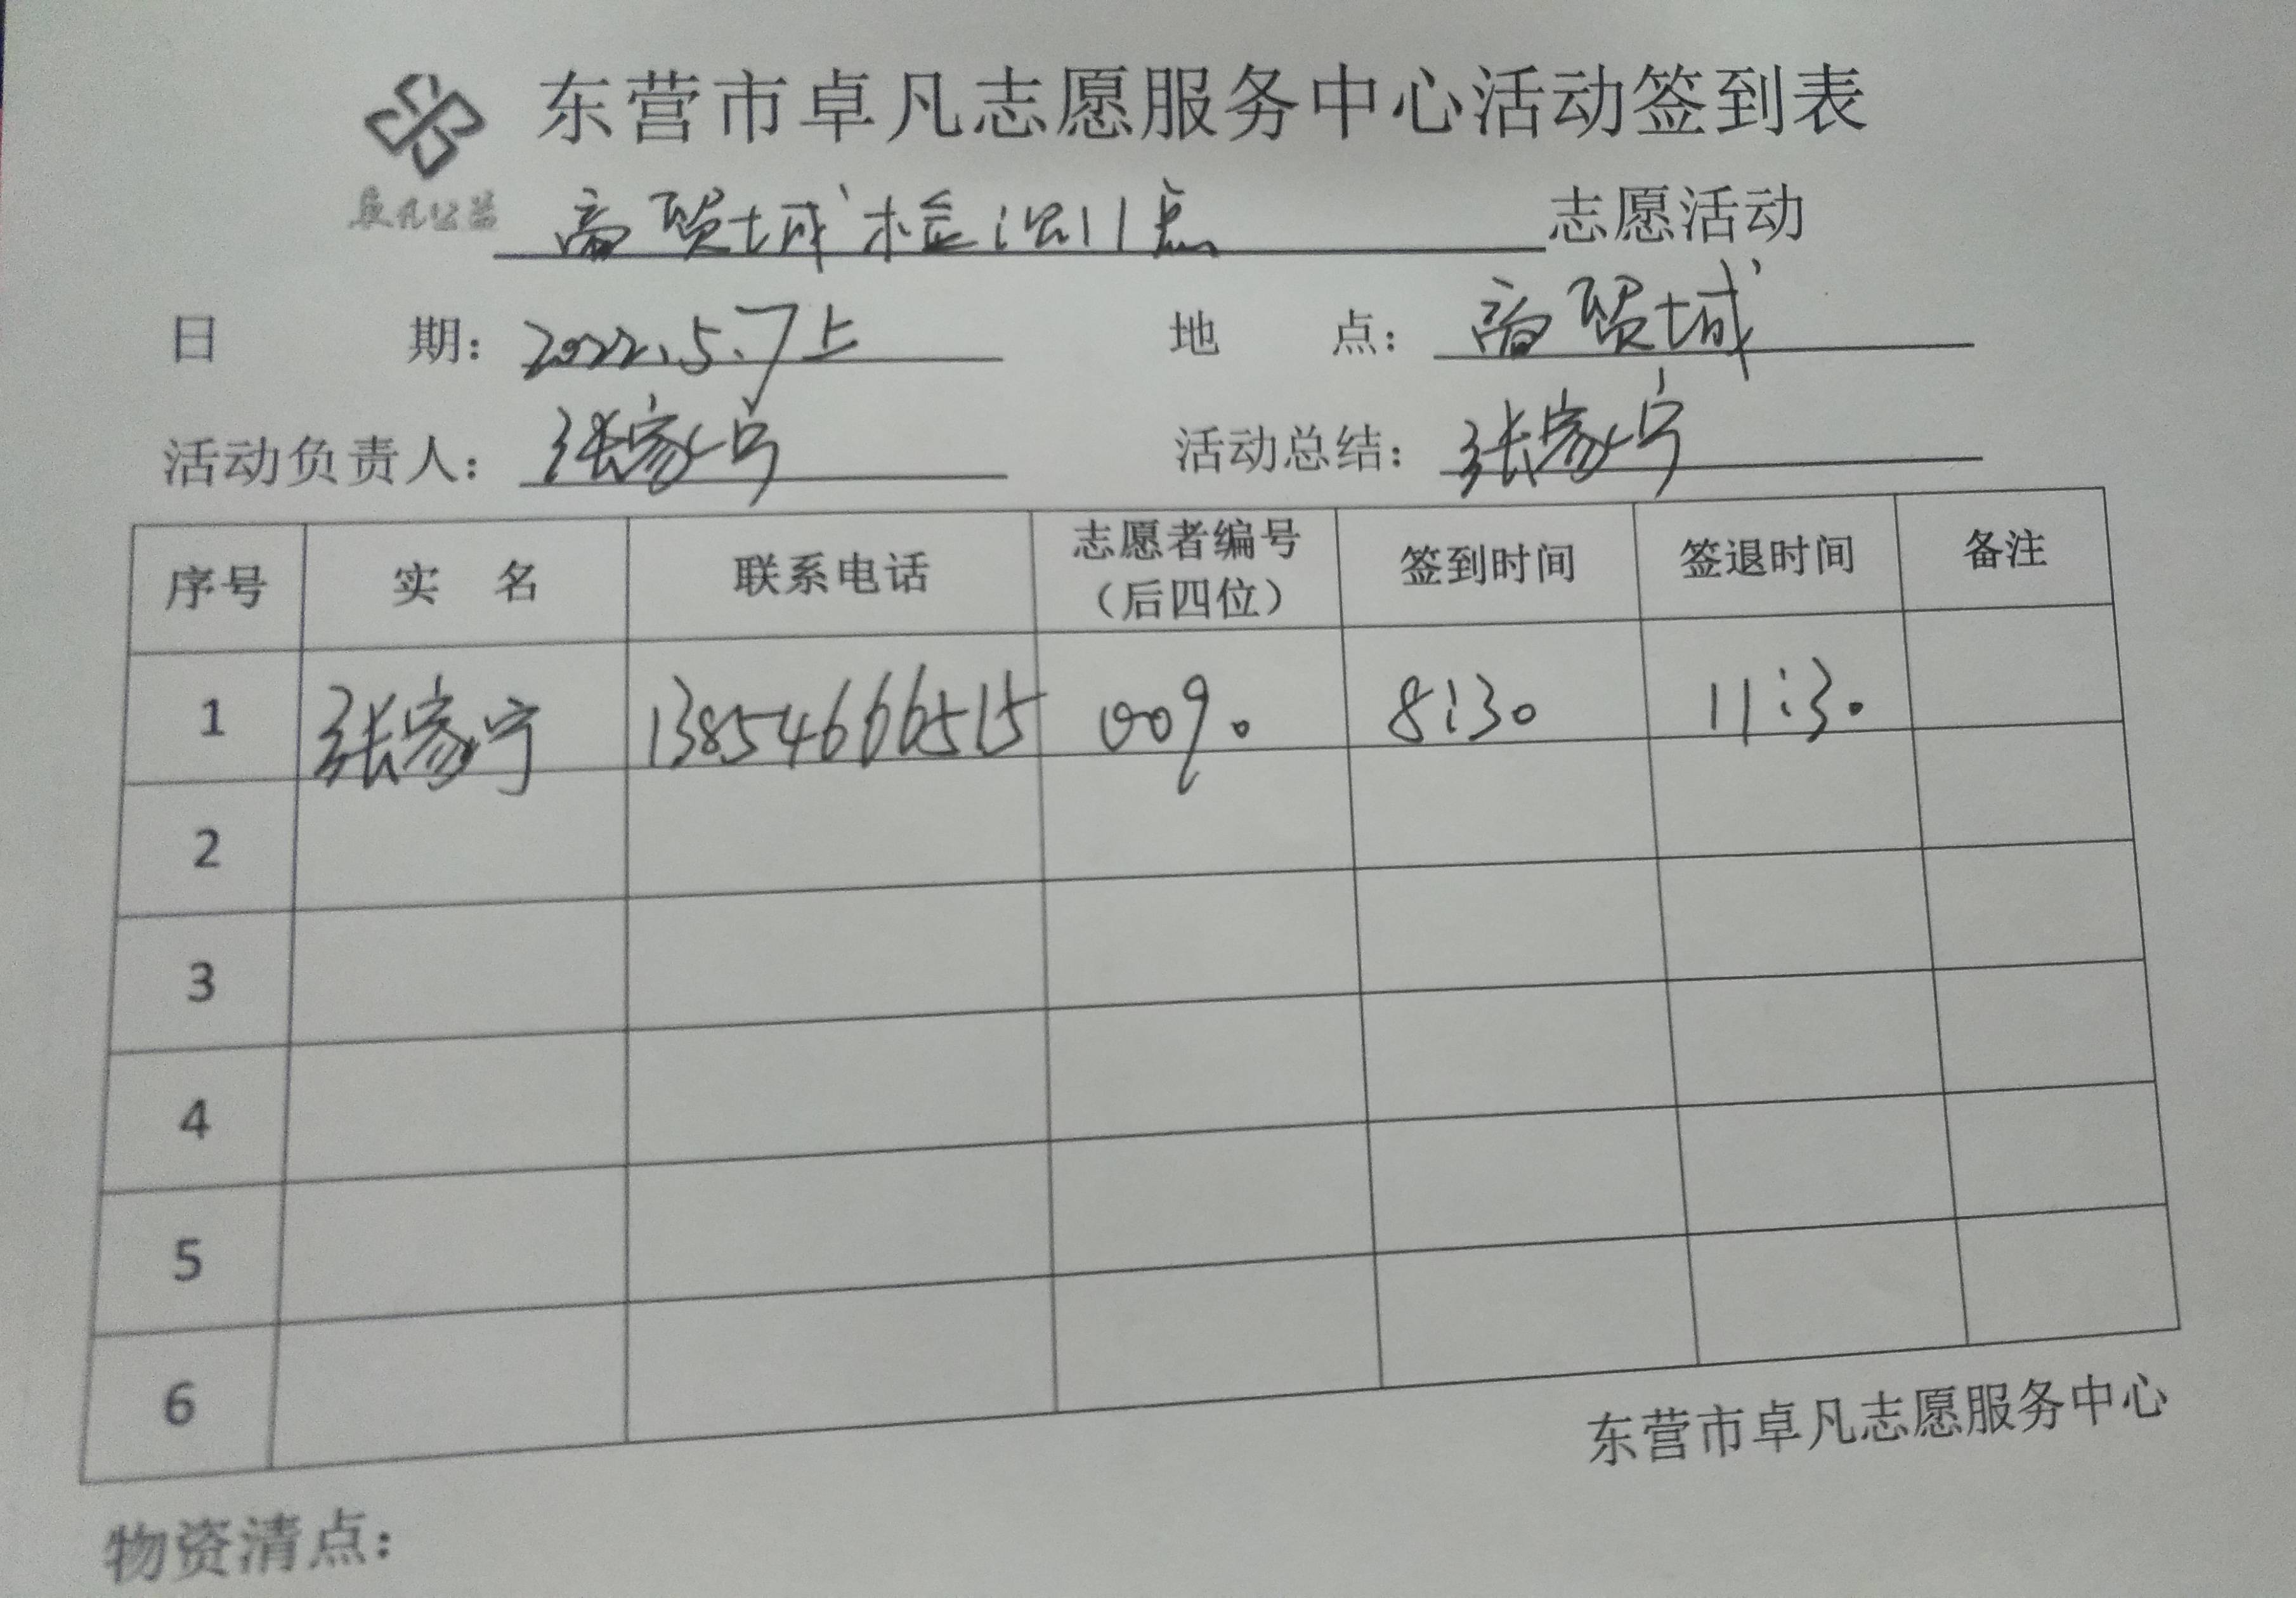 东营市卓凡志愿服务中心活动签到表
卓凡公益
商贸城检测点志愿活动
日期：2022.5.7上 地点：商贸城
活动负责人：张家宁 活动总结：张家宁
序号 实名 联系电话 志愿者编号（后四位） 签到时间 签退时间 备注
1 张家宁 13854666515 0090 8:30 11:30
2
3
4
5
6
东营市卓凡志愿服务中心
物资清点：